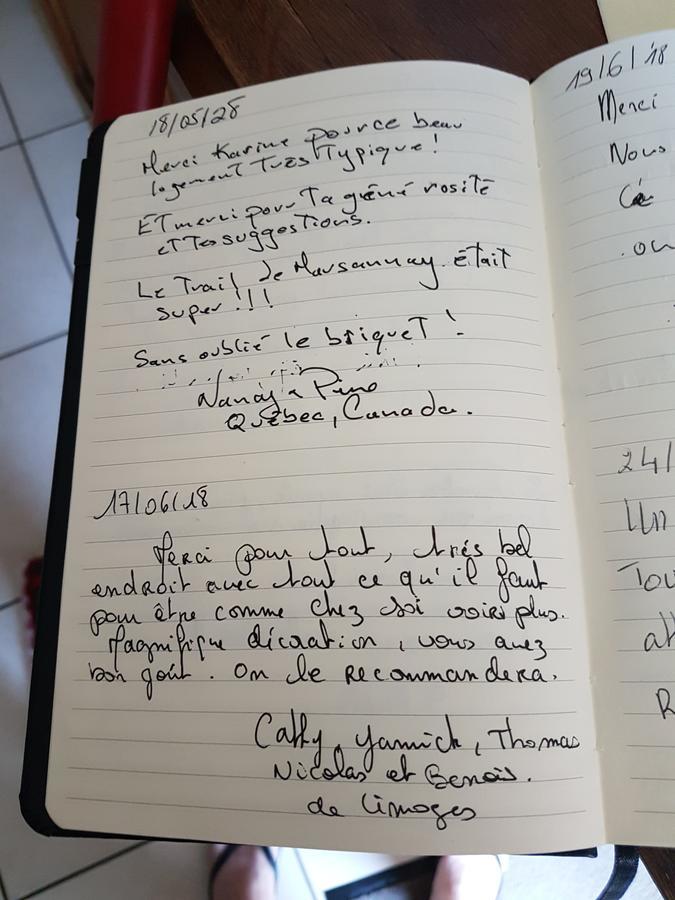 18/05/28
Merci Karine pour ce beau
logement Très Typique !
ET merci pour Ta générosité
et Tes suggestions.
Le Trail de Marsannay était
super !!!
Sans oublié le briqueT !
Nancy & Pino
Québec, Canada.
17/06/18
Merci pour tout, très bel
endroit avec tout ce qu'il faut
pour être comme chez soi voire plus.
Magnifique décoration, vous avez
bon goût. On le recommandera.
Cathy, Yannick, Thomas
Nicolas et Benois.
de Limoges
19/6/18
Merci
Nous
ou
24/
Un
Tou
R